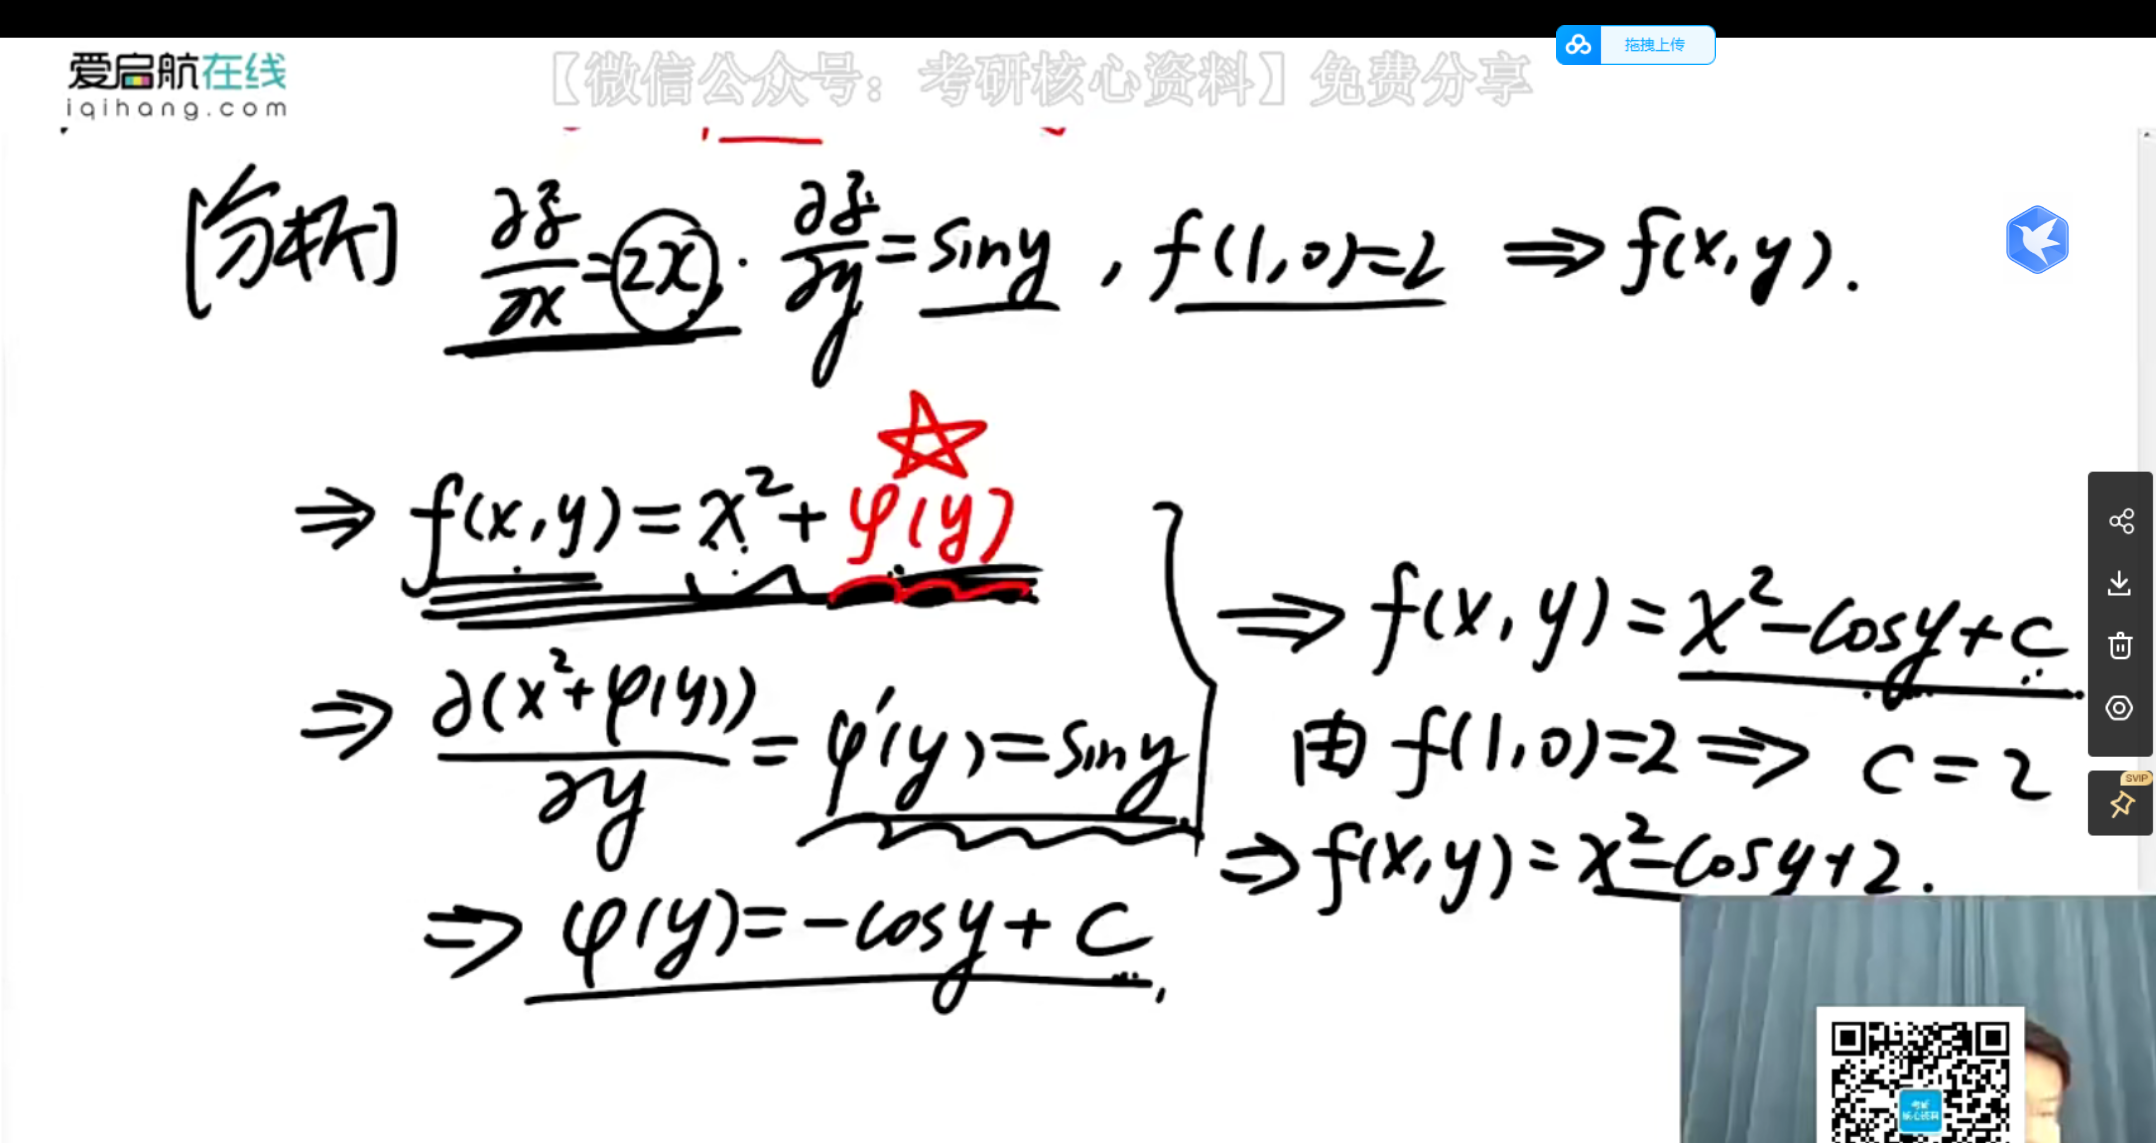 爱启航在线
iqihang.com
【微信公众号：考研核心资料】免费分享
拖拽上传
[分析] ∂f/∂x=2x, ∂f/∂y=siny, f(1,0)=2 ⟹ f(x,y).
⟹ f(x,y)=x²+φ(y)
⟹ ∂(x²+φ(y))/∂y=φ′(y)=siny
⟹ φ(y)=-cosy+C,
⟹ f(x,y)=x²-cosy+C
由 f(1,0)=2 ⟹ C=2
⟹ f(x,y)=x²-cosy+2.
SVIP
考研
核心资料